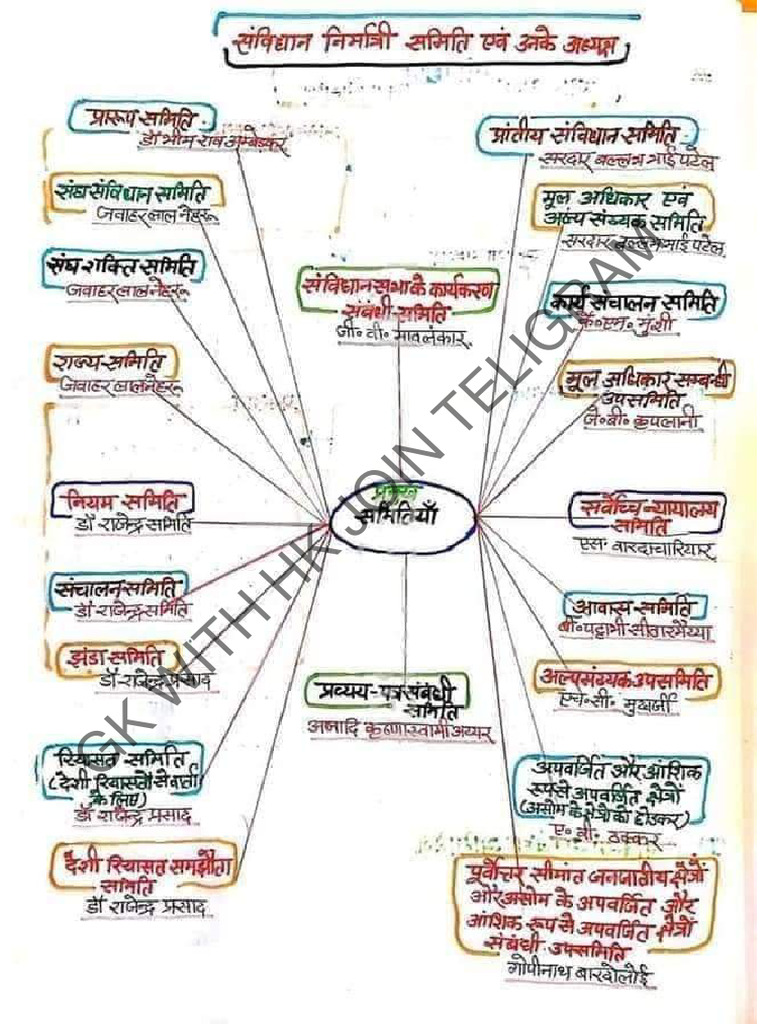 संविधान निर्मात्री समिति एवं उनके अध्यक्ष
प्रारूप समिति
डॉ भीम राव अम्बेडकर
संघ संविधान समिति
जवाहर लाल नेहरू
संघ शक्ति समिति
जवाहर लाल नेहरू
राज्य समिति
जवाहर लाल नेहरू
नियम समिति
डॉ राजेन्द्र समिति
संचालन समिति
डॉ राजेन्द्र समिति
झंडा समिति
डॉ राजेन्द्र प्रसाद
रियासत समिति
(देशी रियासतों से वार्ता
के लिए)
डॉ राजेन्द्र प्रसाद
देशी रियासत समझौता
समिति
डॉ राजेन्द्र प्रसाद
संविधान सभा के कार्यकरण
संबंधी समिति
जी॰ वी॰ मावलंकार
प्रमुख
समितियाँ
प्रव्यय-पत्र संबंधी
समिति
अलादि कृष्णास्वामी अय्यर
प्रांतीय संविधान समिति
सरदार बल्लभ भाई पटेल
मूल अधिकार एवं
अल्प संख्यक समिति
सरदार बल्लभ भाई पटेल
कार्य संचालन समिति
के॰ एम॰ मुंशी
मूल अधिकार सम्बन्धी
उपसमिति
जे॰ बी॰ कृपलानी
सर्वोच्च न्यायालय
समिति
एस॰ वारदाचारियार
आवास समिति
बी॰ पट्टाभी सीतारमैय्या
अल्पसंख्यक उपसमिति
एच॰ सी॰ मुखर्जी
अपवर्जित और आंशिक
रूप से अपवर्जित क्षेत्रों
(असोम के क्षेत्रों को छोडकर)
ए॰ वी॰ ठक्कर
पूर्वोत्तर सीमांत जनजातीय क्षेत्रों
और असोम के अपवर्जित और
आंशिक रूप से अपवर्जित क्षेत्रों
संबंधी उपसमिति
गोपीनाथ बारदोलोई
GK WITH HK JOIN TELIGRAM